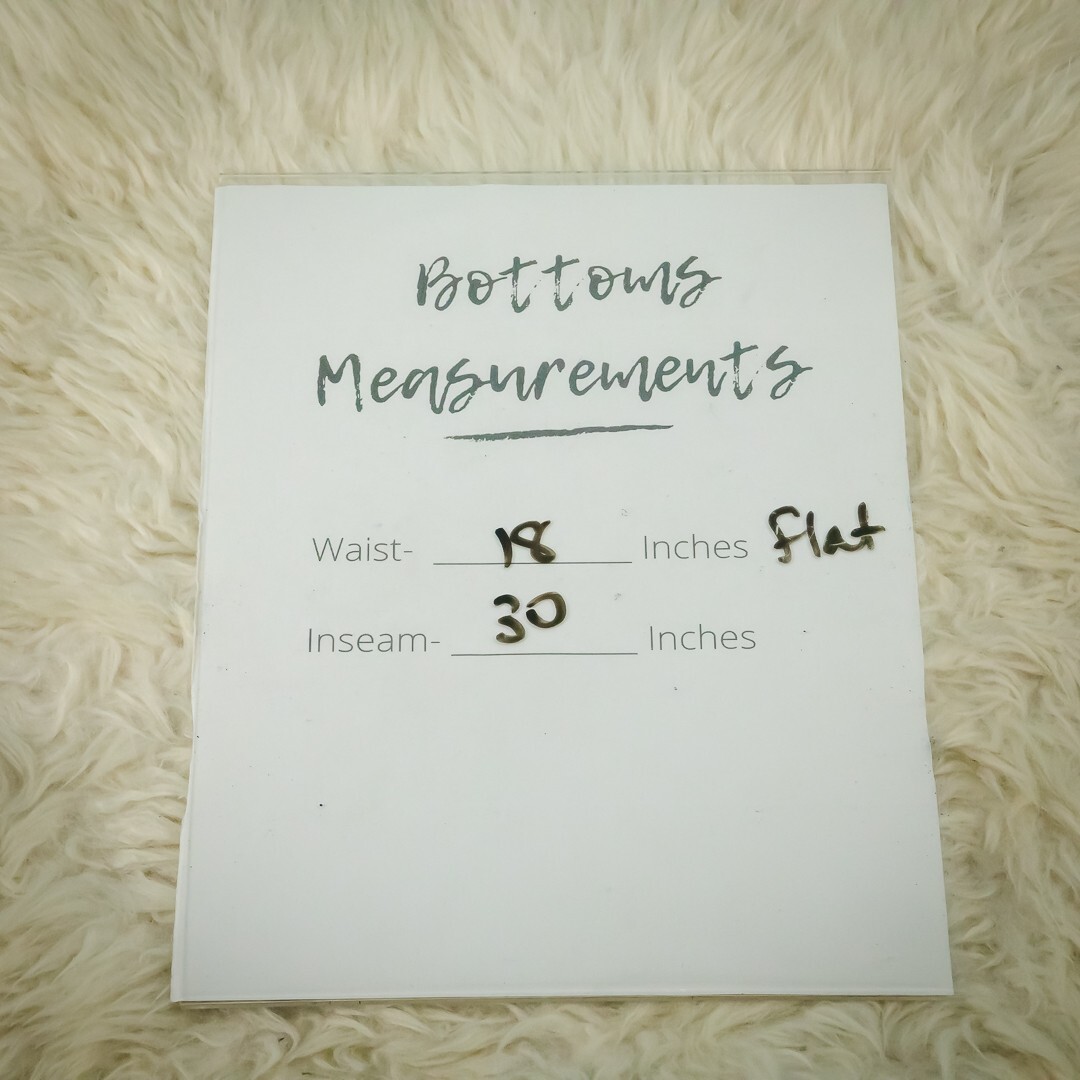 Bottoms
Measurements
Waist- 18 Inches flat
Inseam- 30 Inches